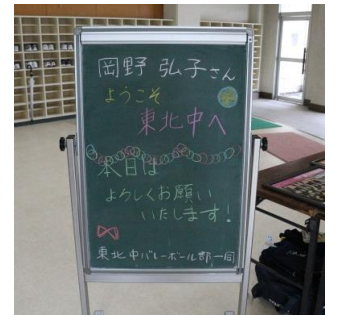 岡野 弘子さん
ようこそ
東北中へ
本日は
よろしくお願い
いたします!
東北中バレーボール部一同